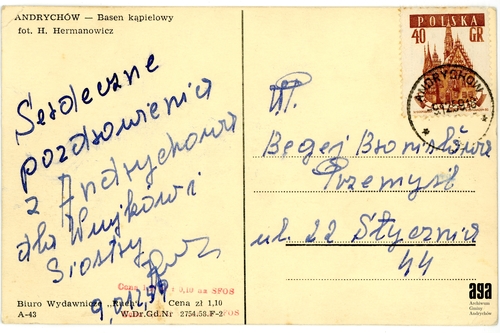 ANDRYCHÓW — Basen kąpielowy
fot. H. Hermanowicz
Serdeczne
pozdrowienia
z Andrychowa
dla Wujków i
Siostry
POLSKA
40 GR
ANDRYCHÓW
W.
Begej Bronisława
Przemyśl
ul. 22 Stycznia
44
0,10 na SFOS
Biuro Wydawnicze „Ruch"
Cena zł 1,10
A-43
W.Dr.Gd.Nr 2754.58.F-2
aga
Archiwum
Gminy
Andrychów